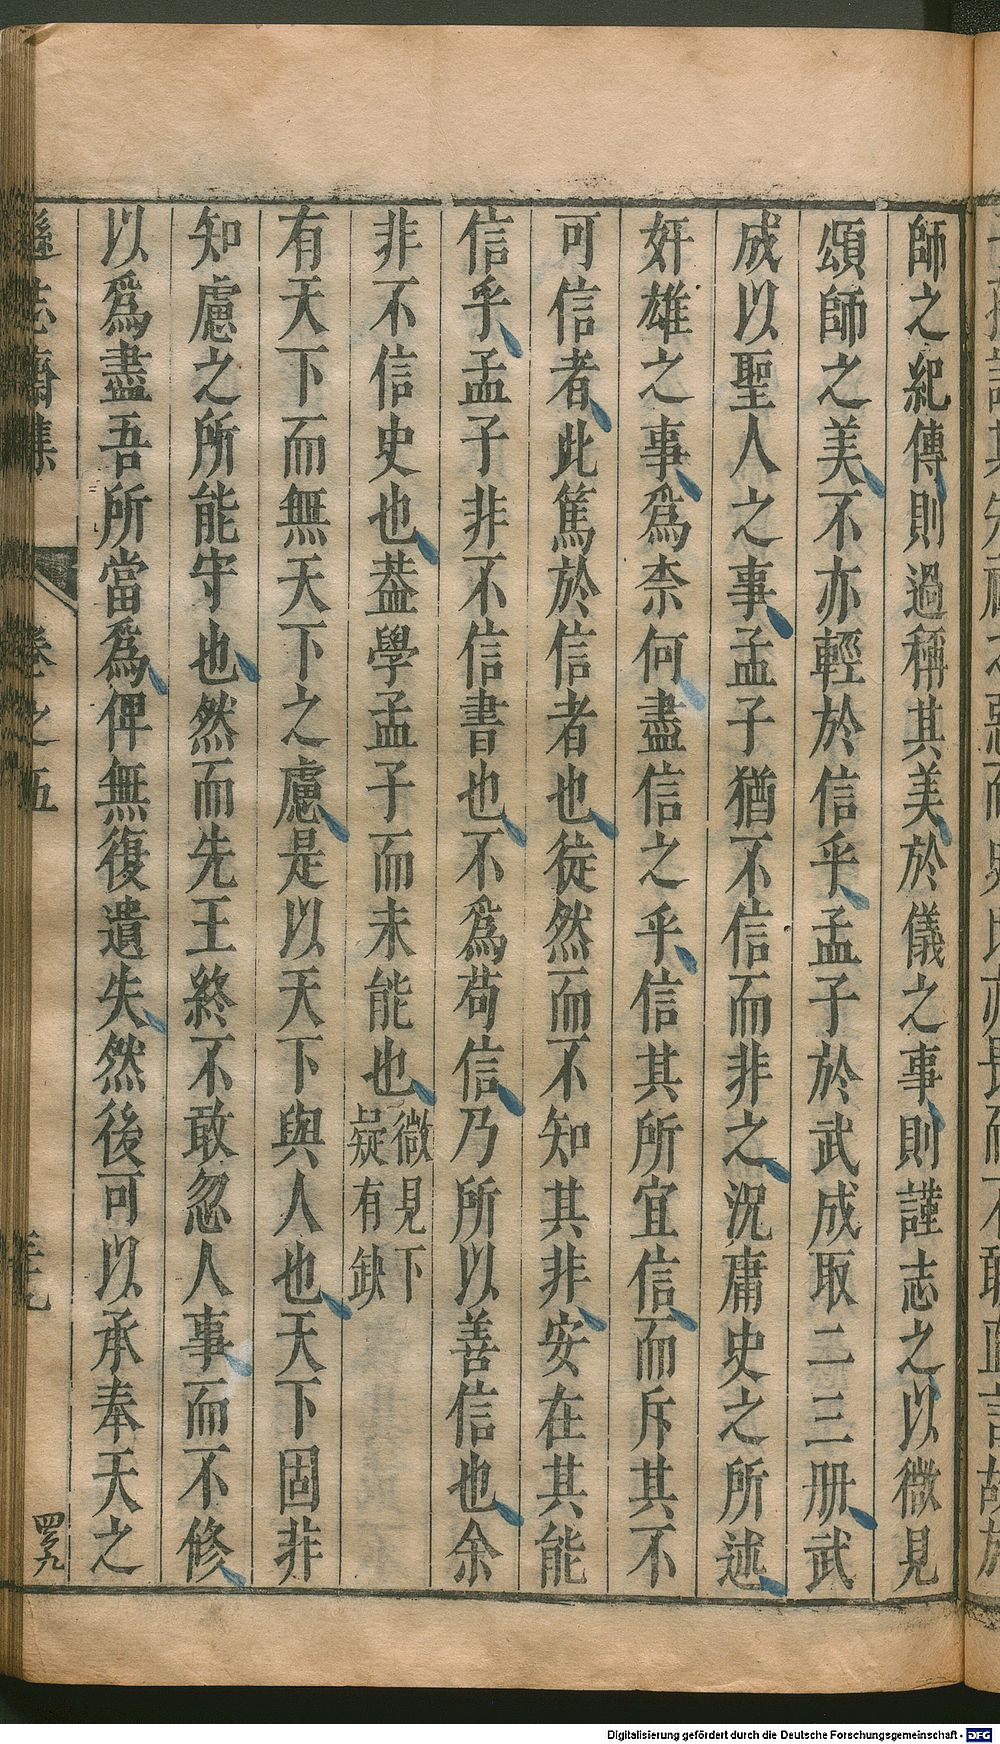 師之紀傳則過稱其美於儀之事則謹志之以微見
頌師之美不亦輕於信乎孟子於武成取二三册武
成以聖人之事孟子猶不信而非之況庸史之所述
奸雄之事爲柰何盡信之乎信其所宜信而斥其不
可信者此篤於信者也徒然而不知其非安在其能
信乎孟子非不信書也不爲苟信乃所以善信也余
非不信史也葢學孟子而未能也微見下
疑有缺
有天下而無天下之慮是以天下與人也天下固非
知慮之所能守也然而先王終不敢忽人事而不修
以爲盡吾所當爲俾無復遺失然後可以承奉天之
遜志齋集
卷之五
Digitalisierung gefördert durch die Deutsche Forschungsgemeinschaft - DFG